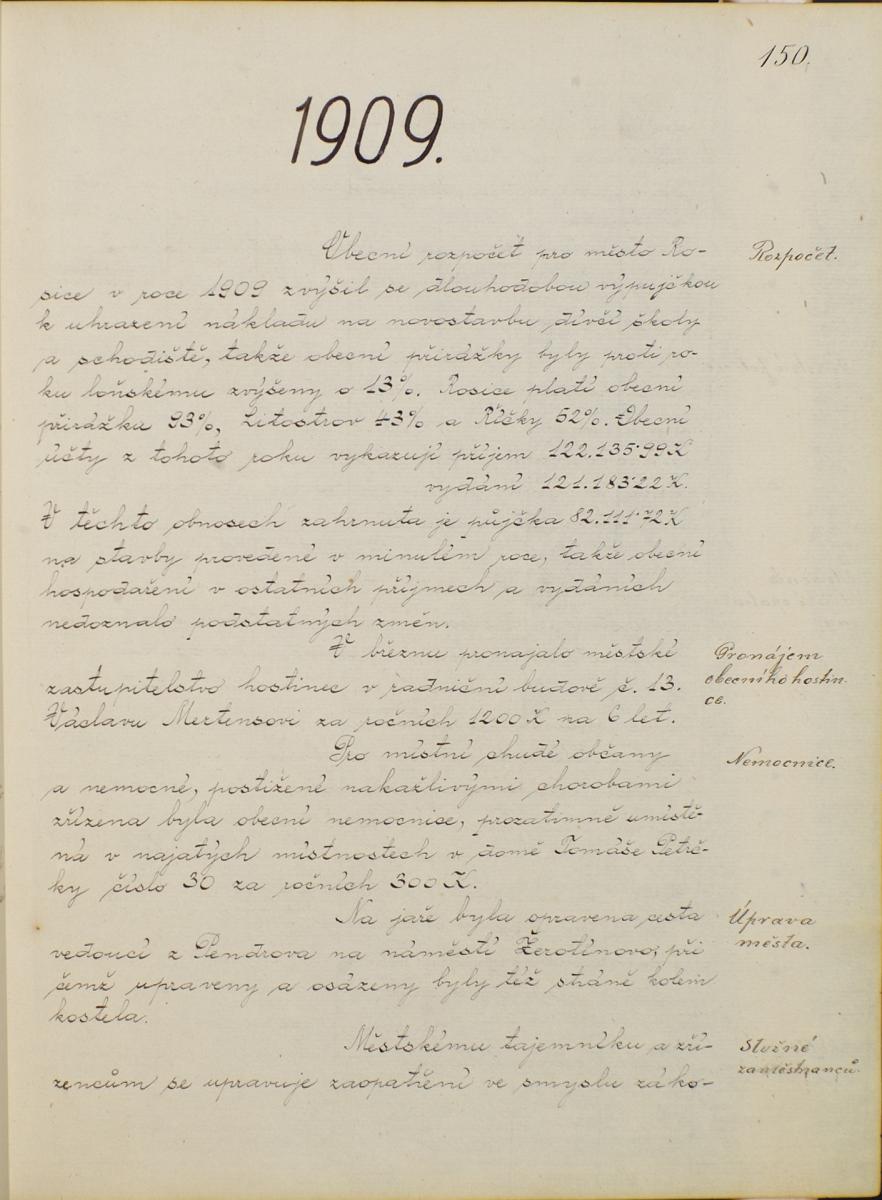 150.
1909.
Obecní rozpočet pro město Ro-
Rozpočet.
sice v roce 1909 zvýšil se dlouhodobou výpujčkou
k uhrazení nákladu na novostavbu dívčí školy
a schodiště, takže obecní přirážky byly proti ro-
ku loňskému zvýšeny o 13%. Rosice platí obecní
přirážku 93%, Litostrov 43% a Říčky 52%. Obecní
účty z tohoto roku vykazují příjem 122.135·99 K
vydání 121.183·22 K.
V těchto obnosech zahrnuta je půjčka 82.111·72 K
na stavby provedené v minulém roce, takže obecní
hospodaření v ostatních příjmech a vydáních
nedoznalo podstatných změn.
V březnu pronajalo městské
Pronájem
obecního hostin-
ce.
zastupitelstvo hostinec v radniční budově č. 13.
Václavu Mertensovi za ročních 1200 K na 6 let.
Pro místní chudé občany
Nemocnice.
a nemocné, postižené nakažlivými chorobami
zřízena byla obecní nemocnice, prozatimně umístě-
ná v najatých místnostech v domě Tomáše Petrš-
ky číslo 30 za ročních 300 K.
Na jaře byla opravena cesta
Úprava
města.
vedoucí z Pendrova na náměstí Žerotínovo; při
čemž upraveny a osázeny byly též stráně kolem
kostela.
Městskému tajemníku a zří-
Služné
zaměstnanců.
zencům se upravuje zaopatření ve smyslu záko-